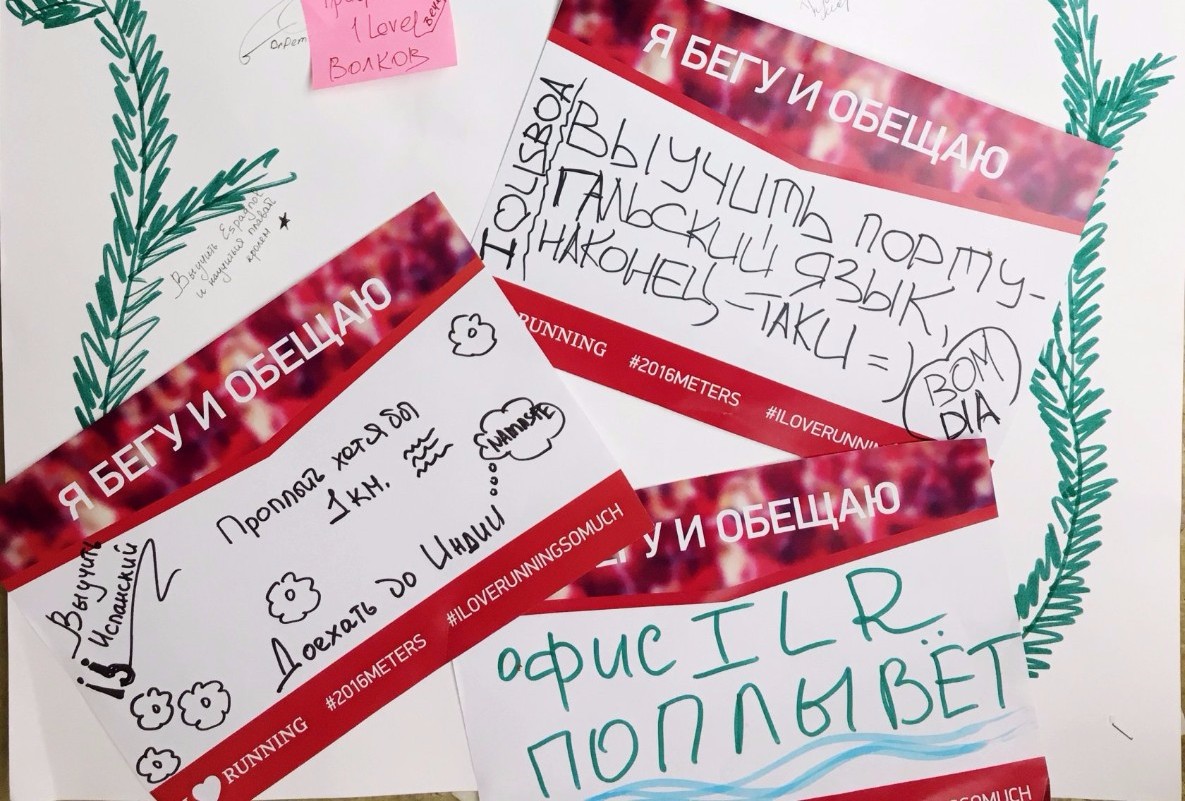 1 Level
ВОЛКОВ
Выучить Espagnol
и научиться плавать
кролем
Я БЕГУ И ОБЕЩАЮ
I ♡ LISBOA
ВЫУЧИТЬ ПОРТУ-
ГАЛЬСКИЙ ЯЗЫК,
НАКОНЕЦ-ТАКИ =)
BOM
DIA
RUNNING #2016METERS #ILOVERUNNIN
Я БЕГУ И ОБЕЩАЮ
Проплыть хотя бы
1 км.
NAMASTE
Доехать до Индии
Выучить
Испанский
I ♥ RUNNING #2016METERS #ILOVERUNNINGSOMUCH
ЕГУ И ОБЕЩАЮ
офис ILR
ПОПЛЫВЁТ
OVERUNNINGSOMUCH